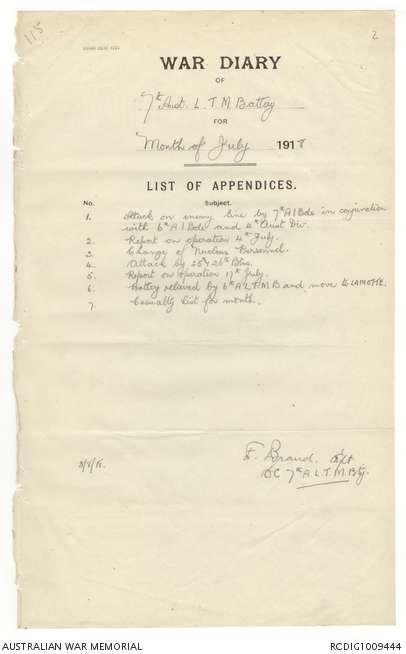 115
2
WAR DIARY
OF
7th Aust. L. T. M. Battery
FOR
Month of July 1918
LIST OF APPENDICES.
No. Subject.
1. Attack on enemy line by 7th A I Bde in conjunction
with 6th A.I Bde and 4th Aust Div.
2. Report on operation 4th July.
3. Change of Nucleus Personnel.
4. Attack by 25th & 26th Btns.
5. Report on operation 17th July.
6. Battery relieved by 6th A L T M B and move to LAMOTTE.
7. Casualty list for month.
3/8/18.
F. Brand.
OC 7th A L. T. M. Bty.
AUSTRALIAN WAR MEMORIAL
RCDIG1009444